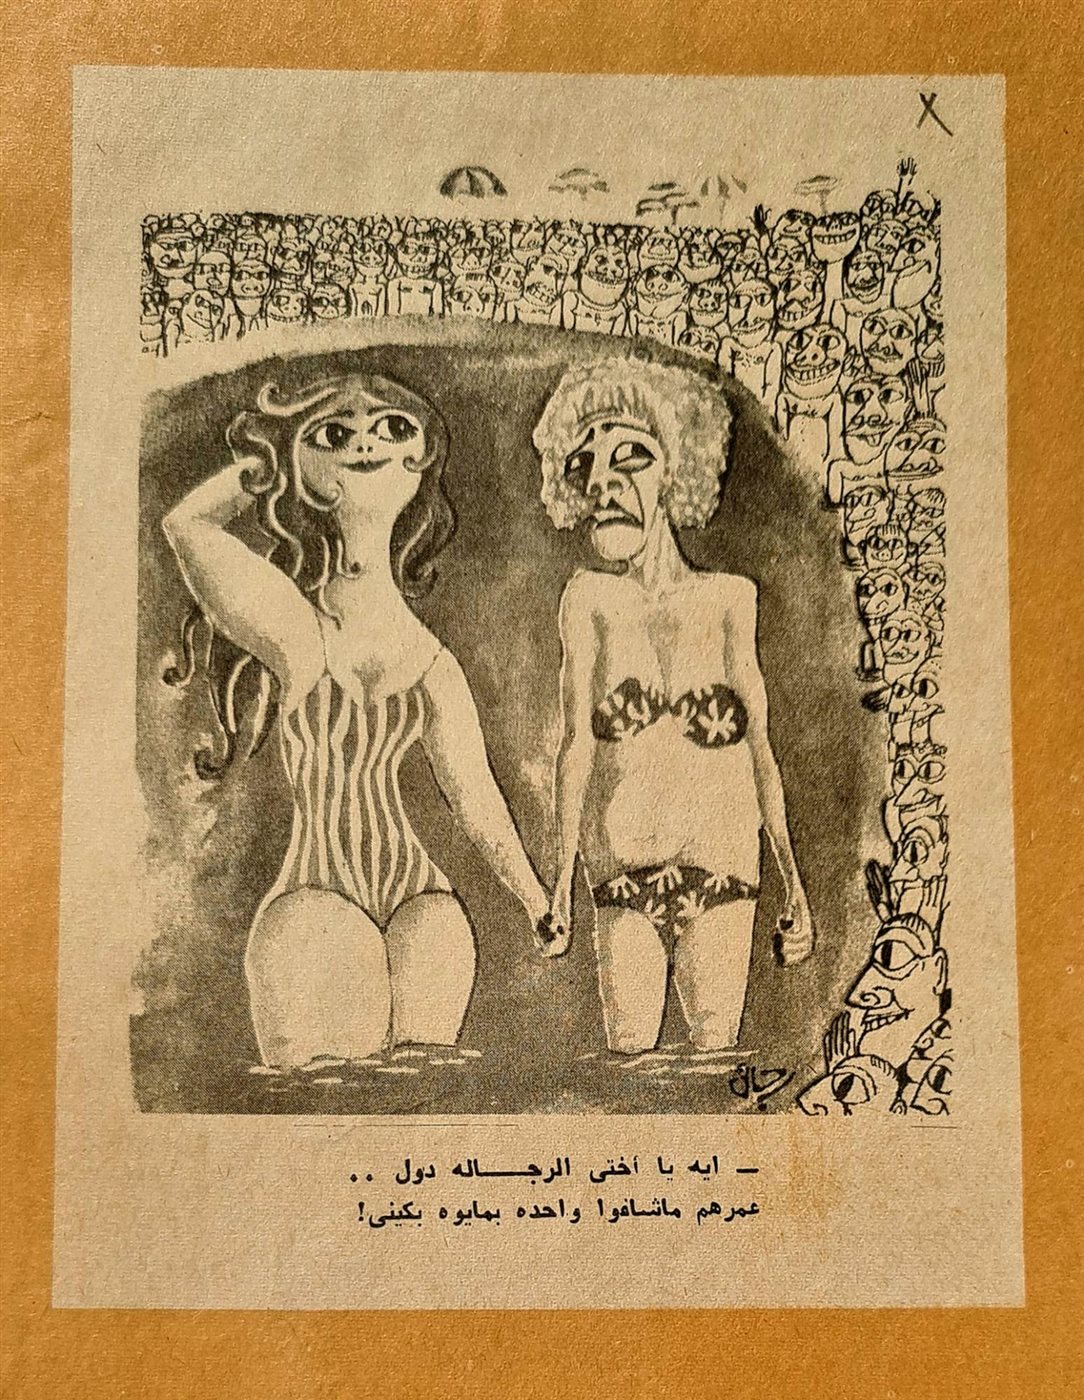 X
رجائى
– ايه يا أختى الرجـــاله دول ..
عمرهم ماشافوا واحده بمايوه بكينى!